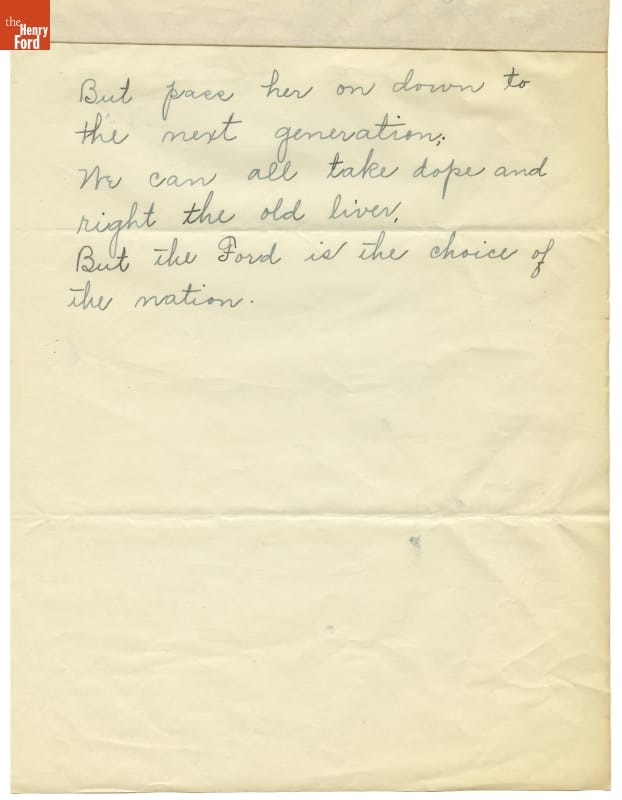 the
Henry
Ford
But pass her on down to
the next generation;
We can all take dope and
right the old liver,
But the Ford is the choice of
the nation.